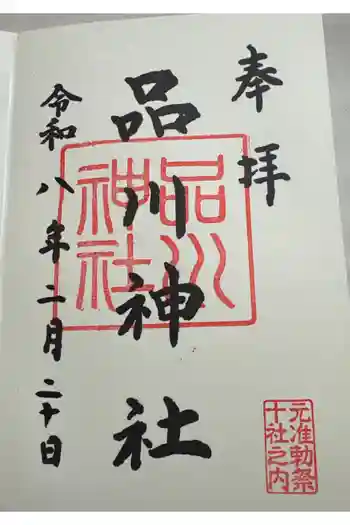 奉拝
品川神社
品川神社
令和八年二月二十日
元准勅祭
十社之内